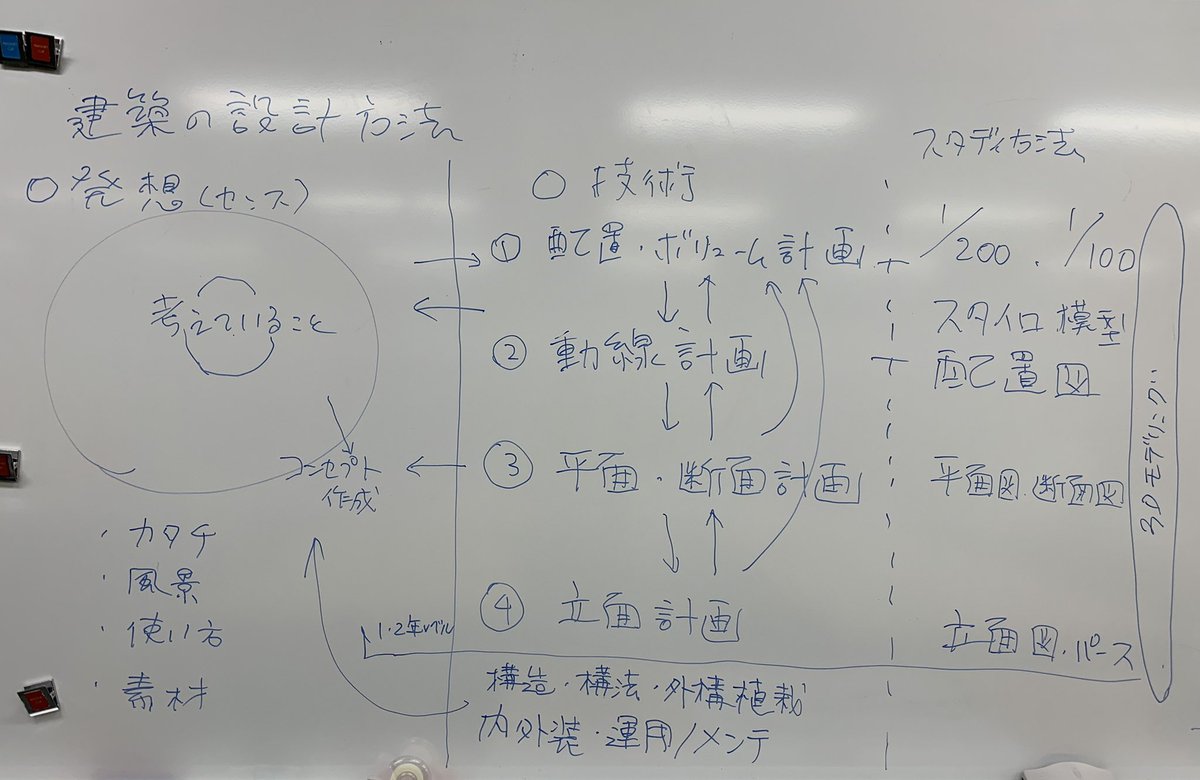 建築の設計方法
○発想(センス)
考えていること
コンセプト
作成
・カタチ
・風景
・使い方
・素材
○技術
①配置・ボリューム計画
②動線計画
③平面・断面計画
④立面計画
1・2年レベル
構造・構法・外構植栽
内外装・運用/メンテ
スタディ方法
1/200・1/100
スタイロ模型
配置図
平面図・断面図
立面図・パース
3Dモデリング